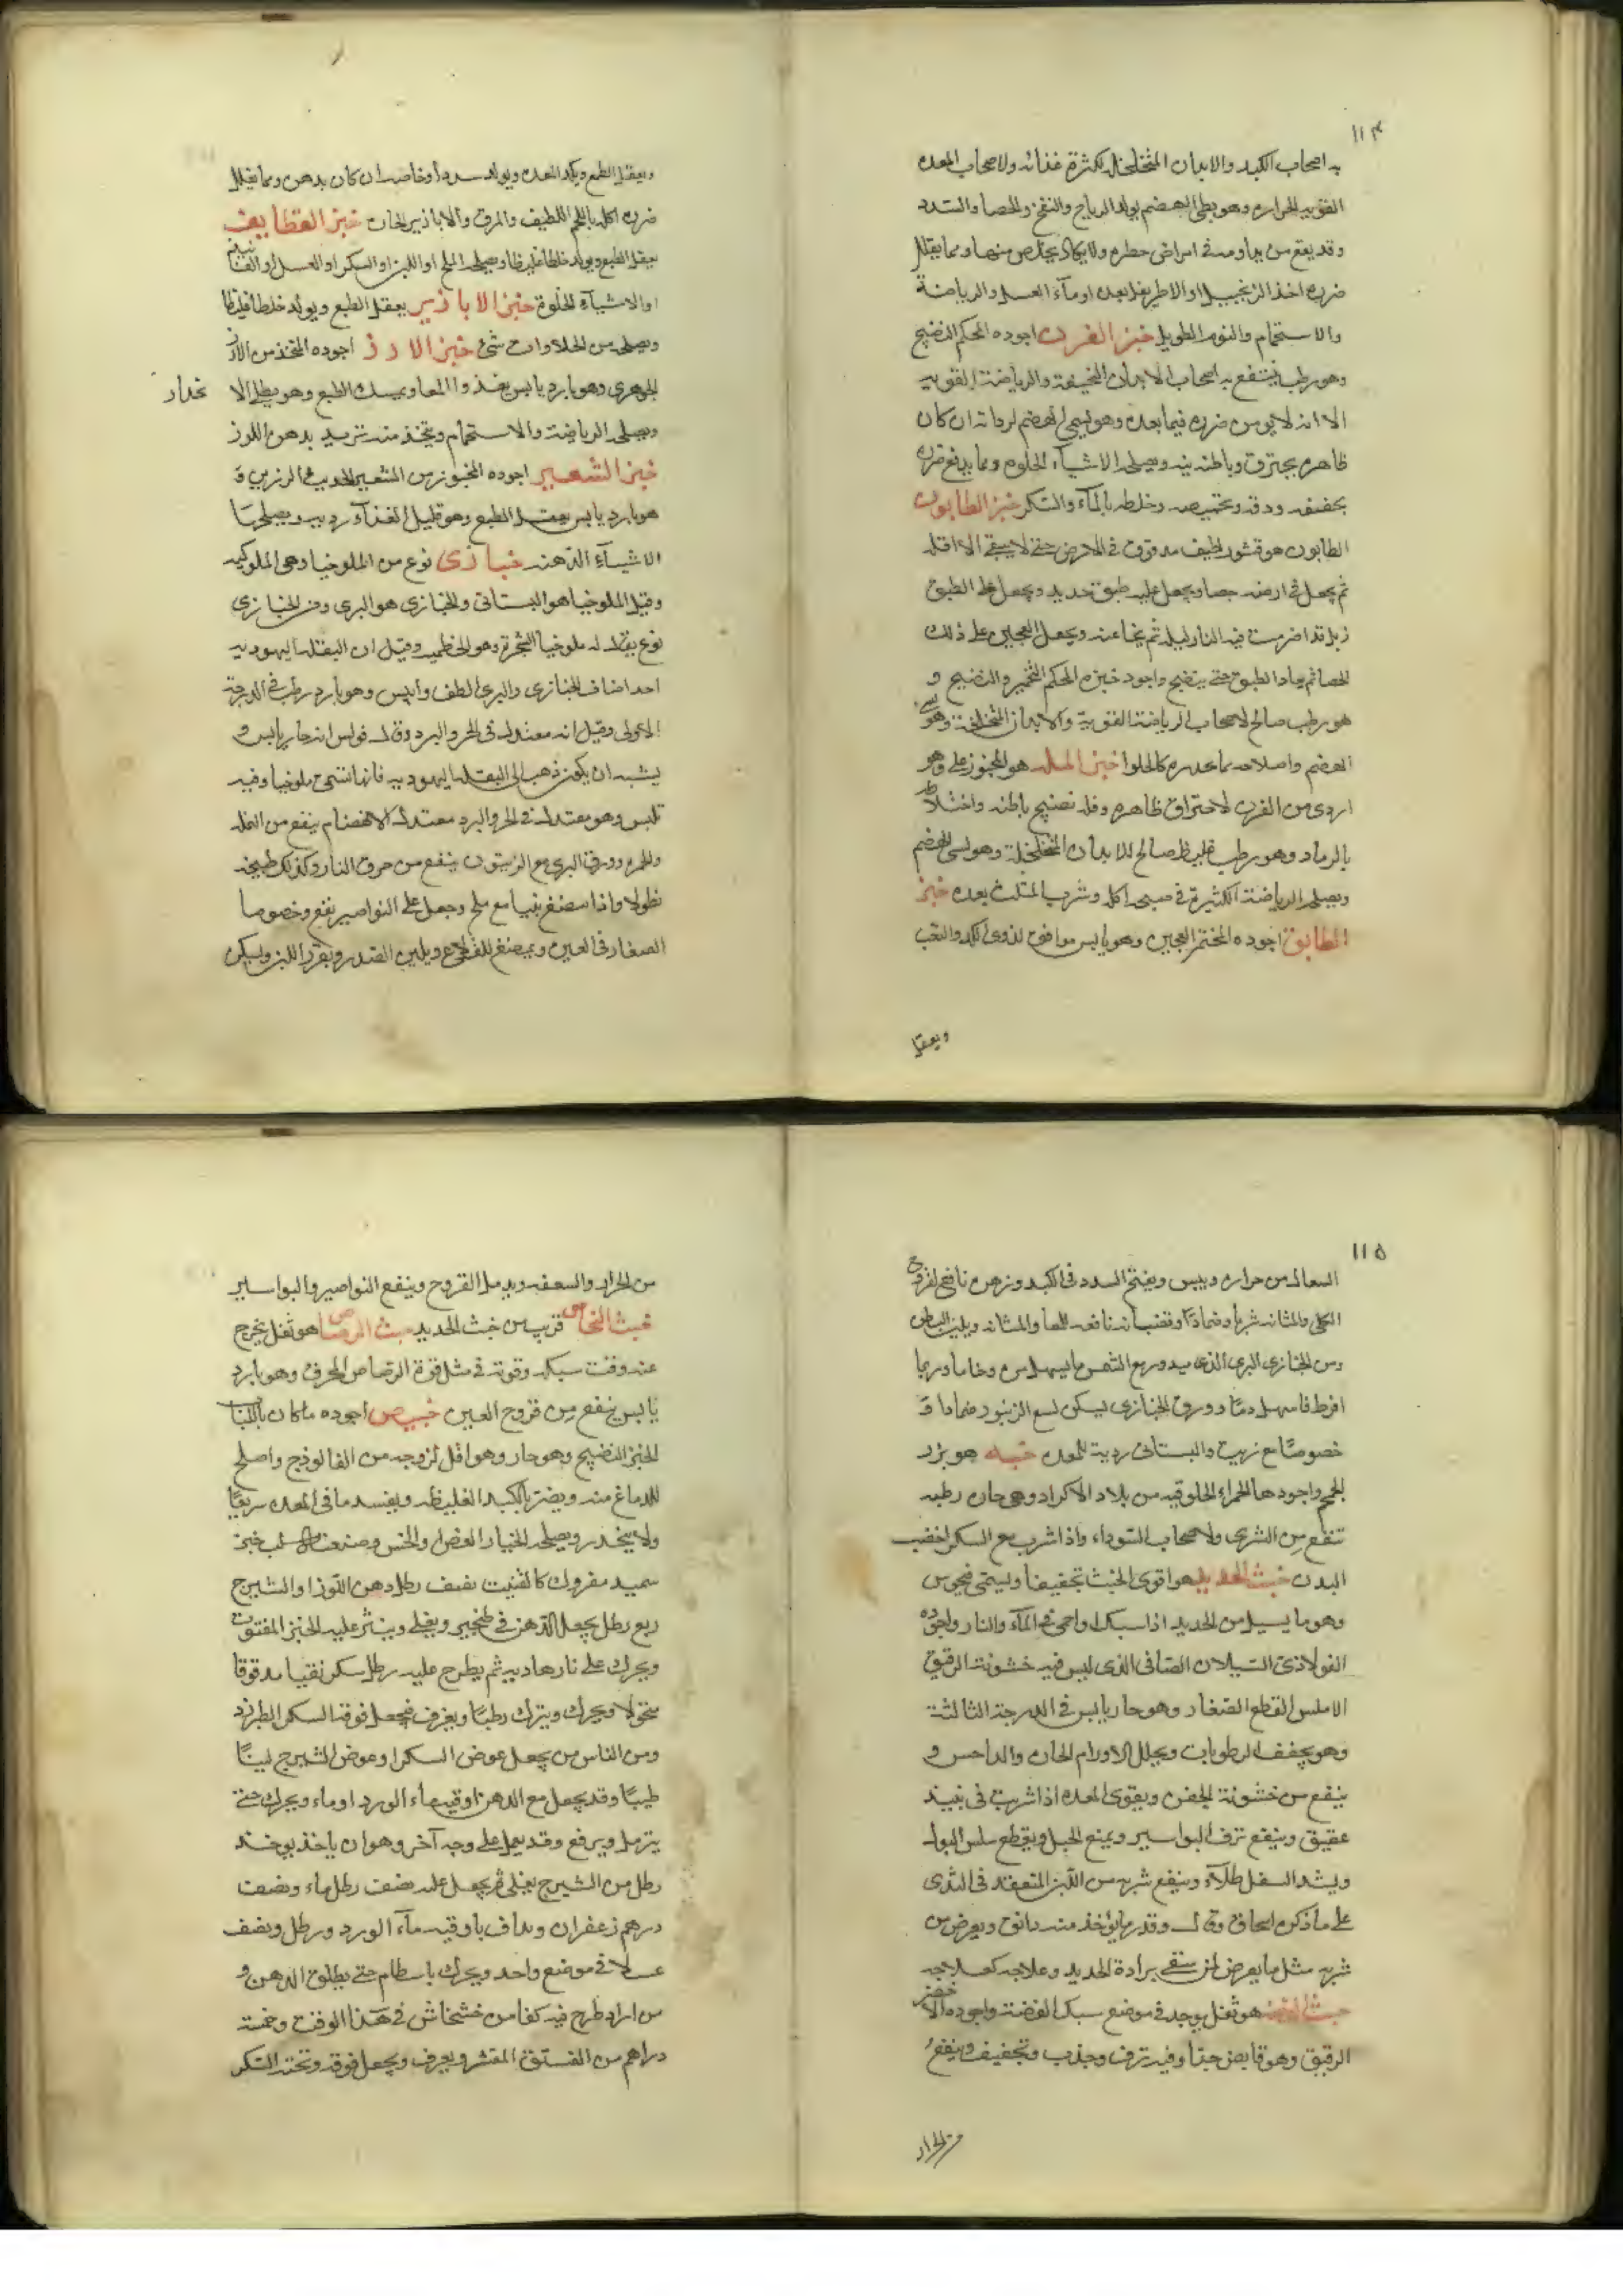 ١١٤
به اصحاب الكبد والابدان المتخلخلة لكثرة غذائه ولاصحاب المعدة
القوية الحرارة وهو بطئ الهضم يولد الرياح والنفخ والحصا والسدد
وقد يقع من يداومه في امراض خطره ولا يكاد يتخلص منها ومما يقلل
ضرره اخذ الزنجبيل او الاطريفل بعده او ماء العسل والرياضة
والاستحمام والنوم الطويل خبز الفرن اجوده المحكم النضيج
وهو رطب ينتفع به اصحاب الابدان النحيفة والرياضة القوية
الا انه لا يومن ضرره فيما بعده وهو بسي الهضم لرداته ان كان
ظاهره يحترق وباطنه نيه ويصلحه الاشياء الحلوه ومما يدفع ضرره
تجفيفه ودقه وتحميصه وخلطه بالماء والسكر خبز الطابون
الطابون هو قشور لطيف مدقوق في الارض حتى لا يبقى الا اقله
ثم يجعل في ارضه حصا ويجعل عليه طبق حديد ويجعل على الطبق
زبل قد اضرمت فيه النار ليلة ثم ينحا عنه ويجعل العجين على ذلك
الحصا ثم يعاد الطبق حتى ينضج واجود خبزه المحكم التخمير والنضيج و
هو رطب صالح لاصحاب الرياضة القوية والابدان المتخلخلة وهو بسي
الهضم واصلاحه بما يحدره كالحلوا خبز المله هو المخبوز على وهو
اردى من الفرن لاحتراق ظاهره وقلة نضيج باطنه واختلاط
بالرماد وهو رطب غليظ صالح للابدان المتخلخلة وهو بسى الهضم
ويصلحه الرياضة الكثيرة في صبحة اكله وشرب المثلث بعده خبز
الطابق اجوده المختمر العجين وهو يابس موافق لذوى الكد والتعب
ويعقل
ويعقل الطبع ويكد المعدة ويولد سددا وخاصة ان كان بدهن ومما يقلل
ضرره اكله باللحم اللطيف والمرق والاباذير الحارة خبز القطايف
يعقل الطبع ويولد خلطا غليظا ويصلحه الملح او اللبن او السكر او العسل او الفانيذ
او الاشياء الحلوة خبز الاباذير يعقل الطبع ويولد خلطا غليظا
ويصلحه من الحلاوات شئ خبز الارز اجوده المتخذ من الارز
الجوهرى وهو بارد يابس يغذ والمعا ويمسك الطبع وهو بطئ الا
نحدار
ويصلحه الرياضة والاستحمام ويتخذ منه ثريد بدهن اللوز
خبز الشعير اجوده المخبوز من الشعير الحديث الرزين و
هو بارد يابس يعقل الطبع وهو قليل الغذاء ردية ويصلحها
الاشياء الدهنه خبازى نوع من الملوخيا وهى الملوكيه
وقيل الملوخيا هو البستانى والخبازى هو البرى ومن الخبازى
نوع يقال له ملوخيا الشجرة وهو الخطمى وقيل ان البقلة اليهودية
احد اضاف الخبازى والبرى الطف وايبس وهو بارد رطب في الدرجة
الاولى وقيل انه معتدل في الحر والبرد وقال فولس انه حار يابس و
يشبه ان يكون ذهب الى البقلة اليهودية فانها تسمى ملوخيا وفيه
تلبس وهو معتدل في الحر والبرد معتدل الانهضام ينفع من النملة
والحمرة وورق البرى مع الزيتون ينفع من حرق النار وكذلك طبيخه
نطولا واذا مضغ نيا مع ملح وجعل على النواصير نفع وخصوصا
الصغار في العين ويمضغ للقلاع ويلين الصدر ويغزر اللبن ويسكن
١١٥
السعال من حراره ويبس ويفتح السدد في الكبد وبزره نافع لقروح
الكلى والمثانه شربا وضمادا وقضبانه نافعه للمعا والمثانه ويلين البطن
ومن الخبازى البرى الذى يدور مع الشمس ما يسهل مره وخاما وربما
افرط فاسهل دما وورق الخبازى يسكن لسع الزنبور ضمادا و
خصوصا مع زيت والبستانى ردية للمعدة خبه هو بزر
الخمخم واجودها الحمراء الحلوقيه من بلاد الاكراد وهى حارة رطبه
تنفع من الشرى ولاصحاب السوداء واذا شرب مع السكر اخصب
البدن خبث الحديد هو اقوى الخبث تجفيفا ويسمى
وهو ما يسيل من الحديد اذا سبك واحمى في الماء والنار واجوده
الفولاذى السيلان الصافى الذى ليس فيه خشونة الرقيق
الاملس القطع الصغار وهو حار يابس في الدرجة الثالثة
وهو يجفف الرطوبات ويحلل الاورام الحارة والداحس و
ينفع من خشونة الجفن ويقوى المعدة اذا شرب فى نبيذ
عتيق وينفع نزف البواسير ويمنع الحبل ويقطع سلس البول
ويشد السفل طلاء وينفع شربه من اللبن المتعقد فى الثدى
على ما ذكره اسحاق وقال وقدر ما يؤخذ منه دانق ويعرض من
شربه مثل ما يعرض لمن سقى برادة الحديد وعلاجه كعلاجه
خبث الفضه هو ثفل يوجد في موضع سبك الفضة واجوده الاخضر
الرقيق وهو قابض جدا وفيه نزف وجذب وتجفيف وينفع
من الجرار
من الجرار والسعفه ويدمل القروح وينفع النواصير والبواسير
خبث النحاس قريب من خبث الحديد خبث الرصاص هو ثفل يخرج
عنه وقت سبكه وقوته في مثل قوة الرصاص المحرق وهو بارد
يابس ينفع من قروح العين خبيص اجوده ما كان باللباب
الخبز النضيج وهو حار وهو اقل لزوجه من الفالوذج واصلح
للدماغ منه ويضر بالكبد الغليظه ويفسد ما فى المعدة سريعا
ولا ينحدر ويصلحه الخيار الغض والخس وصنعته لب خبز
سميد مفروك كالفتيت نصف رطل دهن اللوز او الشيرج
ربع رطل يجعل الدهن في طنجير ويغلى وينثر عليه الخبز المفتوت
ويحرك على نار هادية ثم يطرح عليه رطل سكر نقيا مدقوقا
منخولا ويحرك ويترك رطبا ويغرف فيجعل فوقه السكر الطبرزد
ومن الناس من يجعل عوض السكر او عوض الشيرج لبنا
طيبا وقد يجعل مع الدهن اوقية ماء الورد او ماء ويحرك حتى
يترمل ويرفع وقد يعمل على وجه آخر وهو ان ياخذ يوخذ
رطل من الشيرج يغلى ثم يجعل عليه نصف رطل ماء ونصف
درهم زعفران ويداف باوقية ماء الورد ورطل ونصف
عسلا في موضع واحد ويحرك باسطام حتى يطلق الدهن و
من اراد طرح فيه كفا من خشخاش في هذا الوقت وخمسة
دراهم من الفستق المقشر ويغرف ويجعل فوقه وتحته السكر